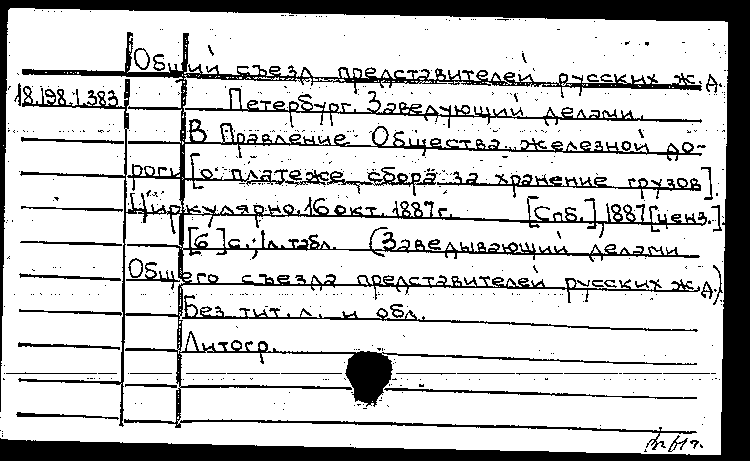 Общий съезд представителей русских ж.д.
18.198.1.383 Петербург. Заведующий делами.
В Правление Общества железной до-
роги [о платеже сбора за хранение грузов].
Циркулярно. 16 окт. 1887г. [Спб.], 1887 [ценз.].
[6] с.; 1л. табл. (Заведывающий делами
Общего съезда представителей русских ж.д.)
Без тит. л. и обл.
Литогр.